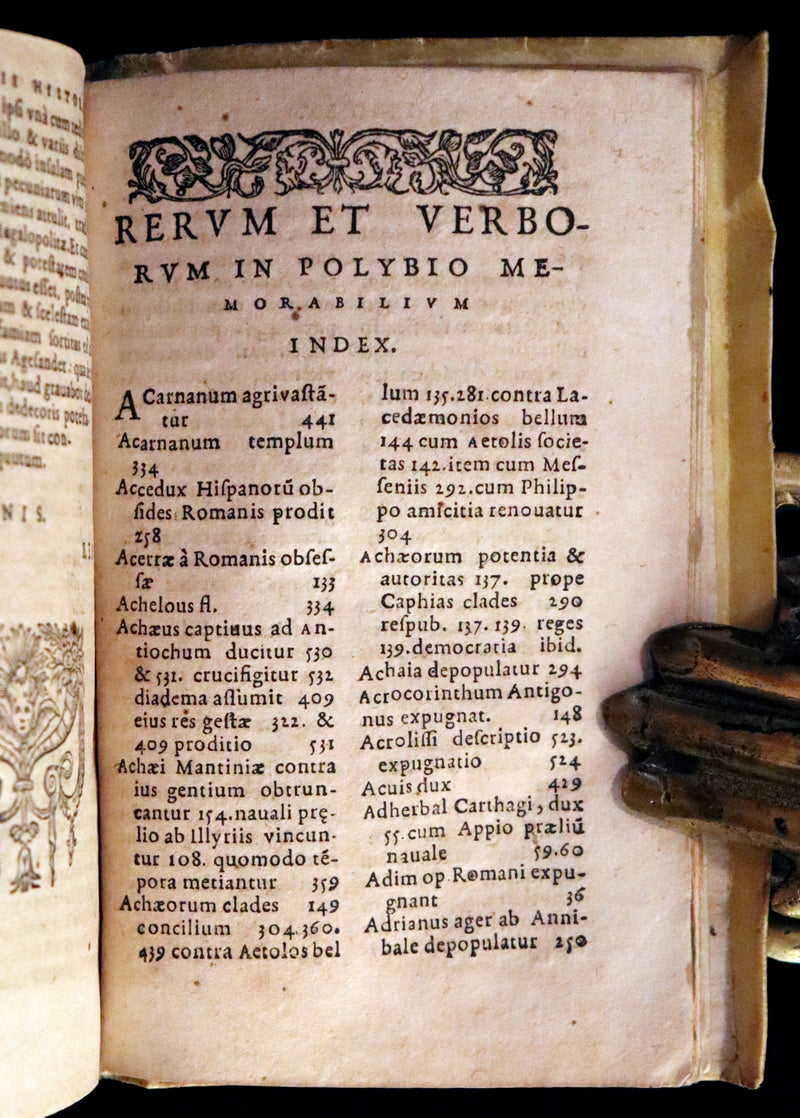 RERVM ET VERBO-
RVM IN POLYBIO ME-
MORABILIVM
INDEX.
ACarnanum agri vaſtã-
tur 441
Acarnanum templum
334
Accedux Hiſpanorũ ob-
ſides Romanis prodit
258
Acerræ à Romanis obſeſ-
ſæ 133
Achelous fl. 334
Achæus captiuus ad An-
tiochum ducitur 530
& 531. crucifigitur 532
diadema aſſumit 409
eius res geſtæ 322. &
409 proditio 531
Achæi Mantiniæ contra
ius gentium obtrun-
cantur 154. nauali prę-
lio ab Illyriis vincun-
tur 108. quomodo tē-
pora metiantur 359
Achæorum clades 149
concilium 304.360.
439 contra Aetolos bel
lum 135.281.contra La-
cedæmonios bellum
144 cum Aetolis ſocie-
tas 142.item cum Meſ-
ſeniis 292.cum Philip-
po amicitia renouatur
304
Achæorum potentia &
autoritas 137. prope
Caphias clades 290
reſpub. 137. 139. reges
139.democratia ibid.
Achaia depopulatur 294
Acrocorinthum Antigo-
nus expugnat. 148
Acroliſſi deſcriptio 523.
expugnatio 524
Acuis dux 429
Adherbal Carthagi, dux
55.cum Appio præliũ
nauale 59.60
Adim op Romani expu-
gnant 36
Adrianus ager ab Anni-
bale depopulatur 250